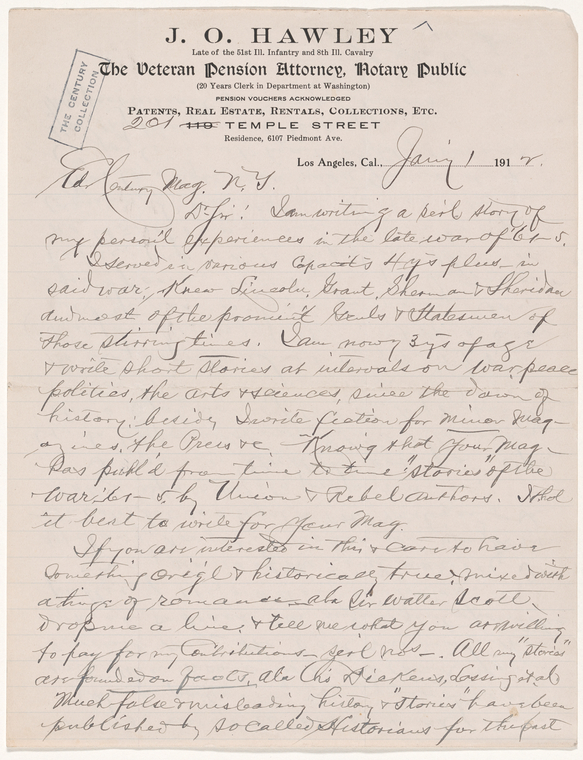 J. O. HAWLEY
Late of the 51st Ill. Infantry and 8th Ill. Cavalry
The Veteran Pension Attorney, Notary Public
(20 Years Clerk in Department at Washington)
PENSION VOUCHERS ACKNOWLEDGED
PATENTS, REAL ESTATE, RENTALS, COLLECTIONS, ETC.
201 119 TEMPLE STREET
Residence, 6107 Piedmont Ave.
THE CENTURY COLLECTION
Los Angeles, Cal., Jany 1 1912.
Edr Century Mag. N.Y.
Dr Sir! I am writing a serl story of
my personl experiences in the late war of '61-5.
I served in various Capacits 4 ys plus in
said war; Knew Lincoln, Grant, Sherman & Sheridan
and most of the promint Genls & Statesmen of
those stirring times. I am now 73 ys of age
& write short stories at intervals on war, peace
politics, the arts & sciences, since the dawn of
history; beside, I write fiction for minor Mag-
azines, the Press &c. Knowg that your Mag.
has publd from time to time "stories" of the
War '61-5. by Union & Rebel authors. I
it best to write for your Mag.
If you are interested in this & care to have
something origl & historically true, mixed with
a tinge of romance - ala Sir Walter Scott,
drop me a line, & tell me what you are willing
to pay for my Contributions - serl nos -. All my "stories"
are founded on facts, ala Chs Dickens, Lossing et al
Much false & misleading history & "stories" have been
published by so called Historians for the past